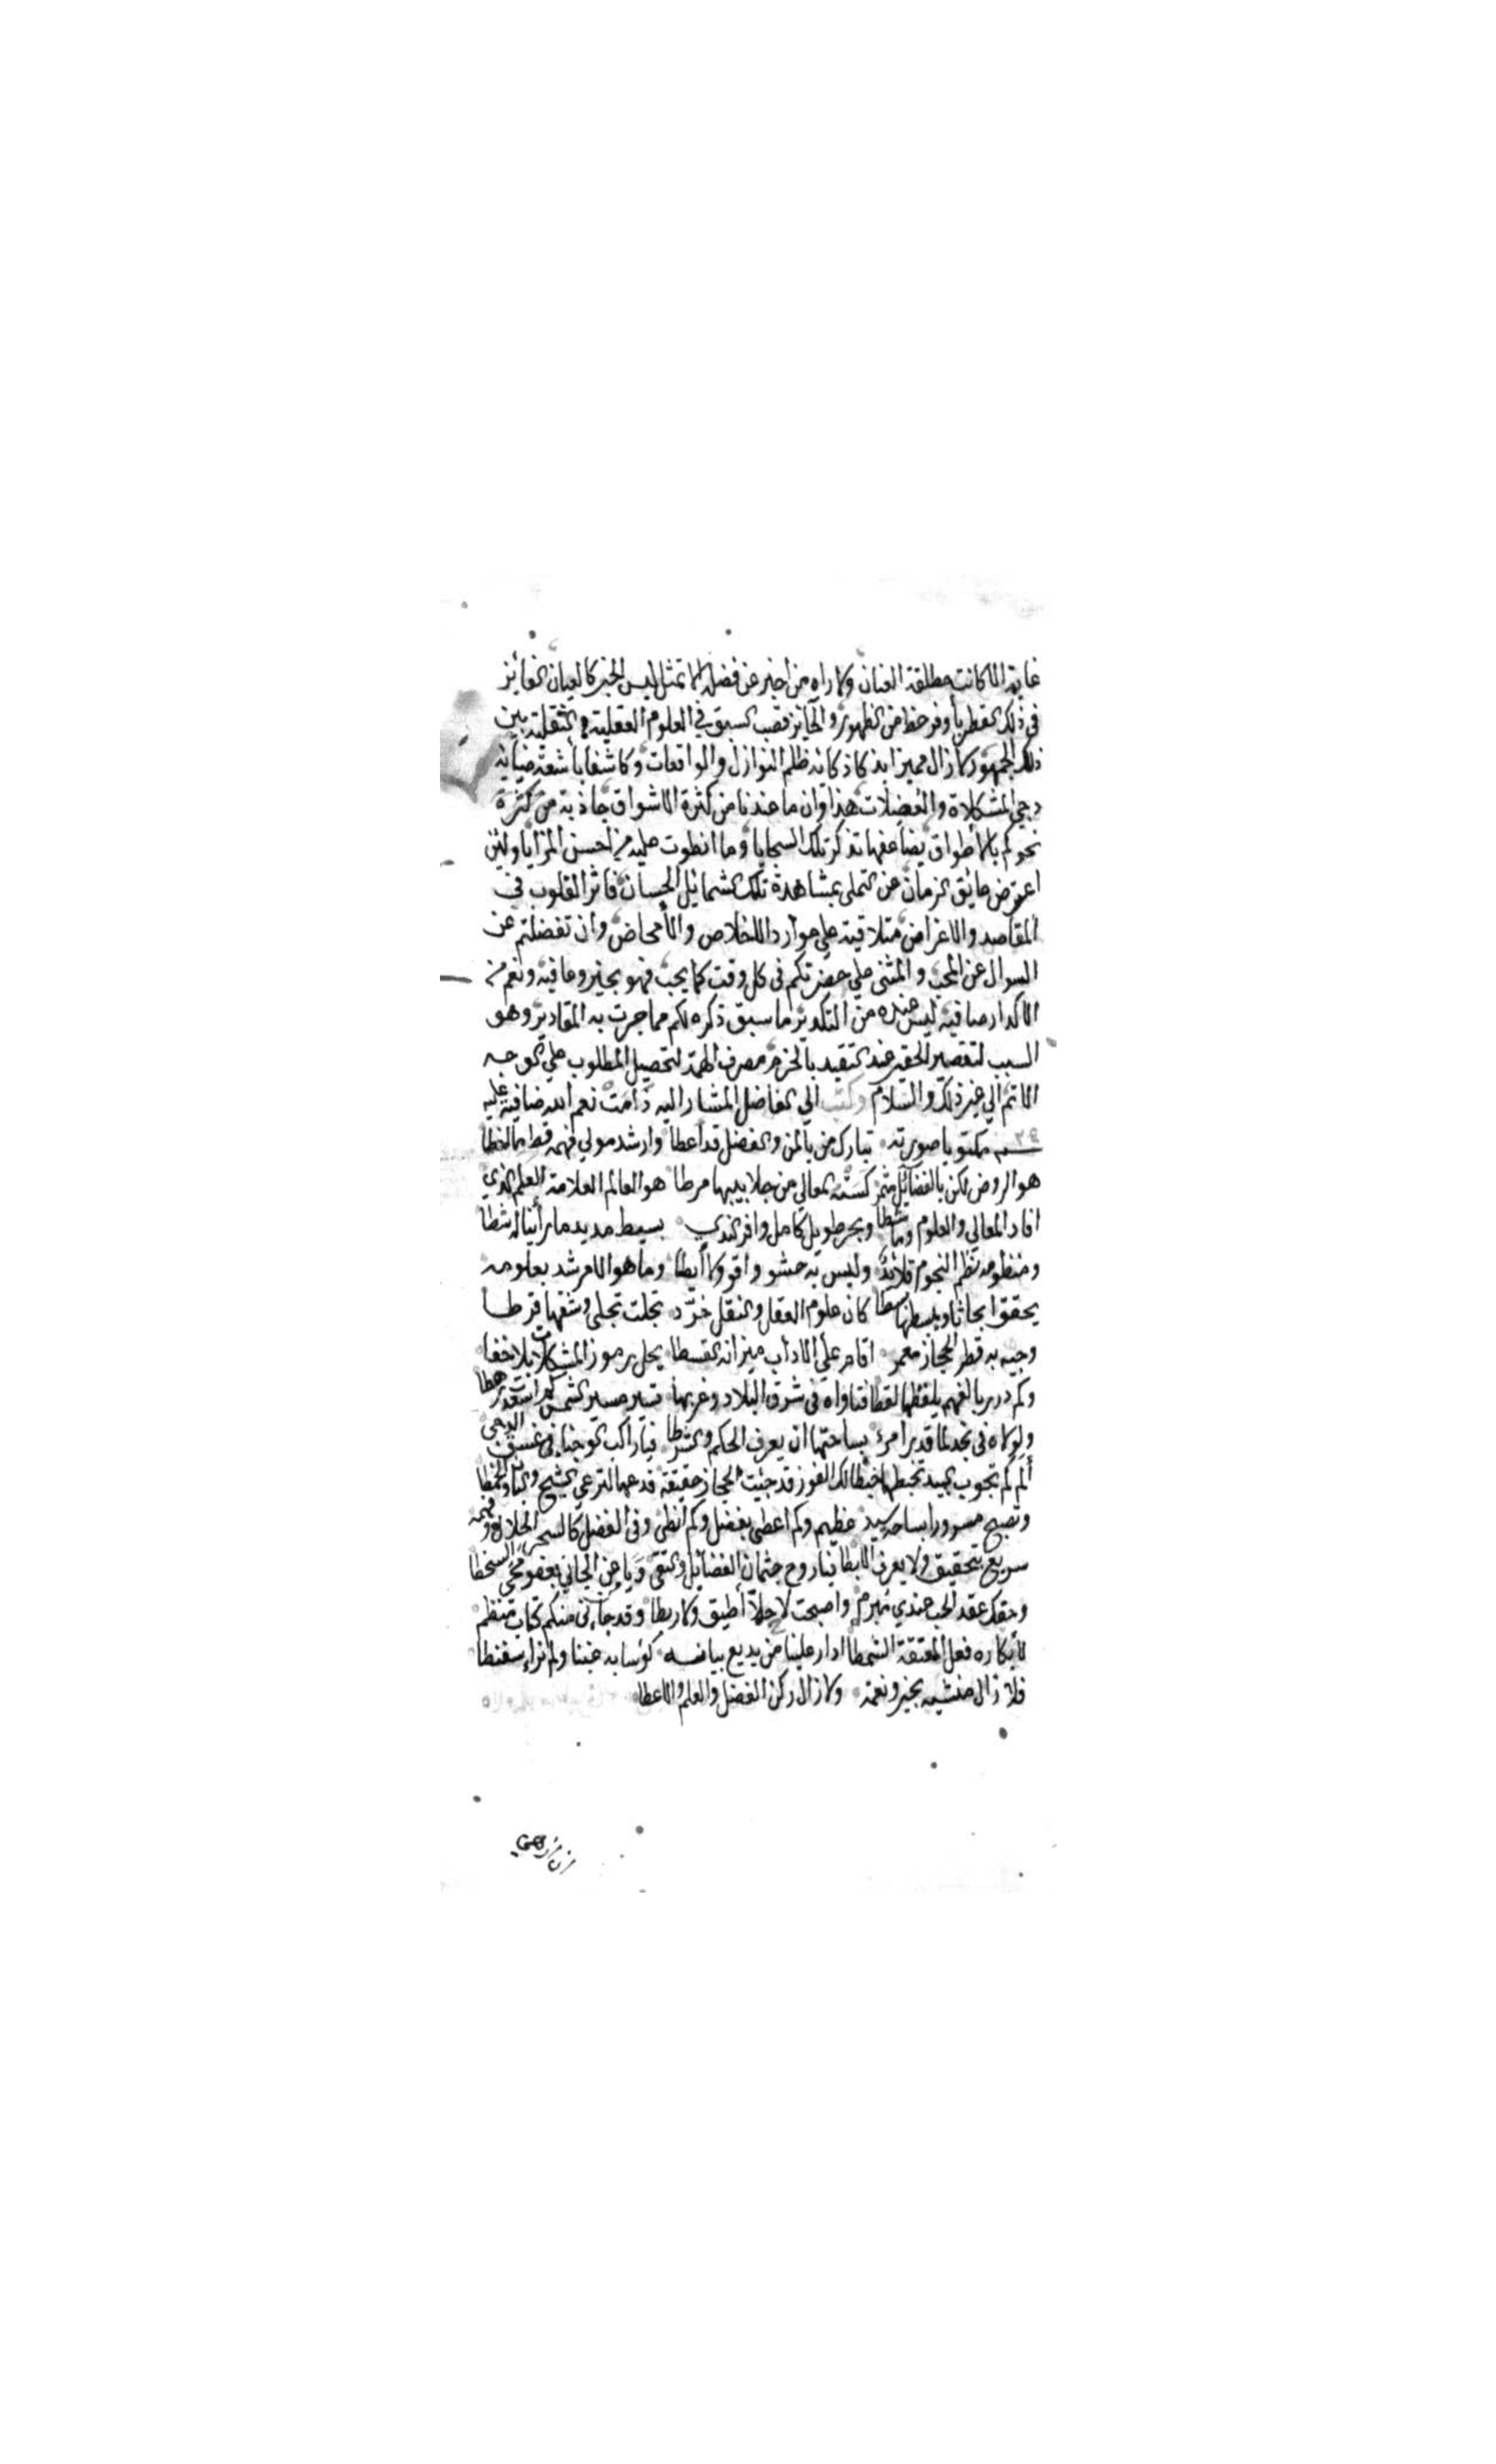 غاية الا كانت مطلقة العنان ولا راه من اخبر عن فضله الا تمثل ليس الخبر كالعيان الفائز
في ذلك القطر بأوفر حظ من الظهور والحايز قصب السبق في العلوم العقلية والنقلية بين
ذلك الجمهور لا زال مميزا بذكا ذكائه ظلم النوازل والواقعات وكاشفا بأشعة ضيائه
دجى المشكلاة والمعضلات هذا وان ما عندنا من كثرة الاشواق جاذبة من كثرة
نحوكم بالأطواق يضاعفها تذكر تلك السجايا وما انطوت عليه من احسن المزايا ولئن
اعترض عايق الزمان عن التملي بمشاهدة تلك الشمائل الحسان فاثر القلوب في
المقاصد والاغراض متلاقية على موارد الاخلاص والأمحاض وان تفضلتم عن
السوال عن المحب والمثنى على حضرتكم في كل وقت كما يجب فهو بخير وعافية ونعم من
الاكدار صافية ليس عنده من التكدير ما سبق ذكره لكم مما جرت به المقادير وهو
السبب لتقصير الحقير عند التقيد بالحزم مصرف الهمة لتحصيل المطلوب على الوجه
الاتم الي غير ذلك والسلام وكتب الي الفاضل المشار اليه دامت نعم الله ضافية عليه
مكتوبا صورته تبارك من بالمن والفضل قد اعطا وارشد مولي فهمه قط ما اخطا
هو الروض لكن بالفضائل مثمر كسته المعالي من جلابيبها مرطا هو العالم العلامة العلم الذي
افاد المعالي والعلوم وما شطا وبحر طويل كامل وافر الندي بسيط مديد ما رأينا له شطا
ومنظومه نظم النجوم قلائد وليس به حشو واقو ولا أيطا وما هو الا مرشد بعلومه
يحقق ابحاثا ويبسطها بسطا كان علوم العقل والنقل خرد تجلت تجلى وشفها قرطا
وجيه به قطر الحجاز معمر اقام على الاداب ميزانه القسطا يحل رموز المشكلات بلا خفا
وكم درر بالفهم يلقطها لقطا فتاواه في شرق البلاد وغربها تسير مسير الشمس كم اسعدت رهطا
ولولاه في نجد لما قدر امرء بساحتها ان يعرف الحكم والشرطا فيا راكب الوجنا في غسق الدجى
ألم كم تجوب البيد تخبطها خبطا لك الفوز قد جئت الحجاز حقيقة فدعها لترعي الشيح والبان والخمطا
وتصبح مسرورا بساحة سيد عظيم وكم اعطى بفضل وكم انطى وفي الفضل كالسحر الحلال وفهمه
سريع بتحقيق ولا يعرف الابطا فيا روح جثمان الفضائل والتقى ويا من الجاني بعفو محى السخطا
وحقك عقد الحب عندي مبرم واصبحت لا حلا أطيق ولا ربطا وقد جاءني منكم كتاب منظم
لأبكاره فعل المعتقة الشمطا ادار علينا من بديع بيانه كؤسا به غبنا ولم نرا سفنطا
فلا زال منشيه بخير ونعمة ولا زال ركن الفضل والعلم والاعطا